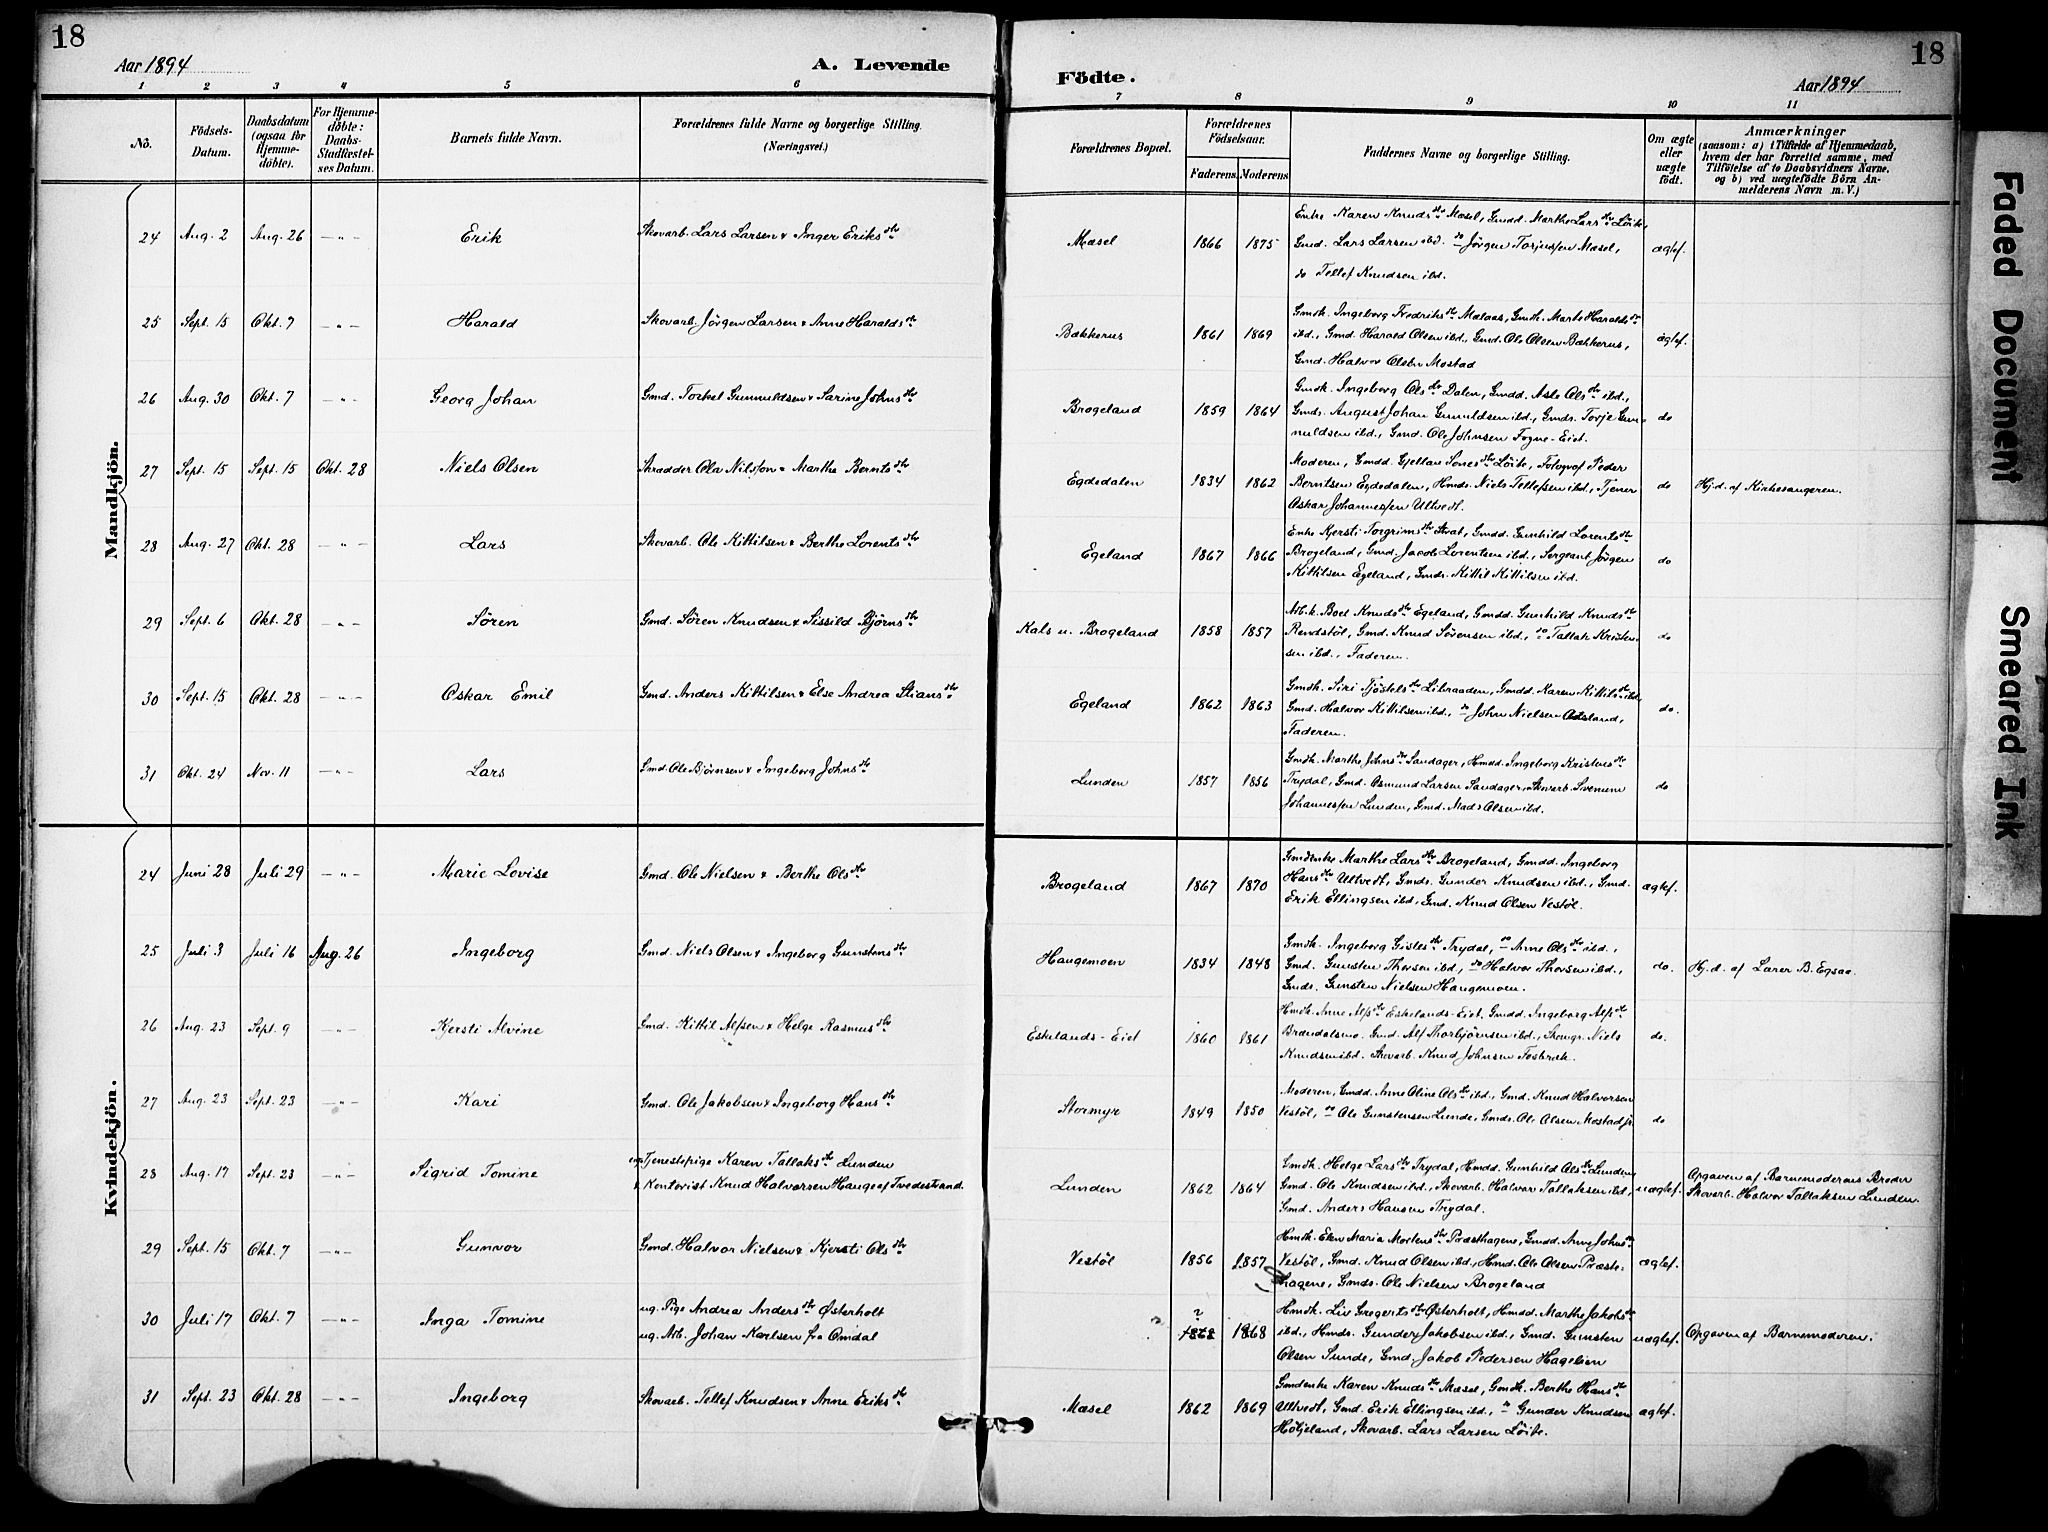 18
Aar 1894
A. Levende
Födte.
Aar 1894
18
1 2 3 4 5 6 7 8 9 10 11
No.
Födsels-
Datum.
Daabsdatum
(ogsaa for
Hjemme-
døbte).
For Hjemme-
döbte:
Daabs-
Stadfæstel-
ses Datum.
Barnets fulde Navn.
Forældrenes fulde Navne og borgerlige Stilling.
(Næringsvei.)
Forældrenes Bopæl.
Forældrenes
Fødselsaar.
Faderens. Moderens.
Faddernes Navne og borgerlige Stilling.
Om ægte
eller
uægte
født.
Anmærkninger
(saasom: a) i Tilfælde af Hjemmedaab,
hvem der har forrettet samme, med
Tilføielse af to Daabsvidners Navne.
og b) ved uægtefødte Börn An-
melderens Navn m. V.)
Mandkjön.
24 Aug. 2 Aug. 26 -"- Erik Skovarb. Lars Larsen & Inger Eriksdtr Mæsel 1866 1875 ægtef.
Enke Karen Knudsdtr Mæsel, Gmdd. Marthe Larsdtr Löite,
Gmd. Lars Larsen ibd. do Jörgen Torjussen Mæsel,
do Tellef Knudsen ibd.
25 Sept. 15 Okt. 7 -"- Harald Skovarb. Jörgen Larsen & Anne Haraldsdtr Bækkerus 1861 1869 ægtef.
Gmdk. Ingeborg Fredriksdtr Mælaas, Gmdk. Marte Haraldsdtr
ibd., Gmd. Harald Olsen ibd., Gmd. Ole Olsen Bækkerus,
Gmd. Halvor Olsen Mostad
26 Aug. 30 Okt. 7 -"- Georg Johan Gmd. Torkel Gunnuldsen & Sarine Johnsdtr Brogeland 1859 1864 do
Gmdk. Ingeborg Olsdtr Dalen, Gmdd. Aslo Olsdtr ibd.,
Gmds. August Johan Gunuldsen ibd., Gmds. Torje Gun-
nuldsen ibd., Gmd. Ole Johnsen Fogne-Eiet.
27 Sept. 15 Sept. 15 Okt. 28 Niels Olsen Skrædder Ola Nilsson & Marthe Berntsdtr Egdedalen 1834 1862 do Hj.d. af Kirkesangeren.
Moderen, Gmdd. Gjellau Sonesdtr Löite, Fotograf Peder
Berntsen Egdedalen, Hmds. Niels Tellefsen ibd., Tjener
Oskar Johannessen Ultvedt.
28 Aug. 27 Okt. 28 -"- Lars Skovarb. Ole Kittilsen & Berthe Lorentsdtr Egeland 1867 1866 do
Enke Kjersti Torgrimsdtr Stvat, Gmdd. Gunhild Lorentsdtr
Brogeland, Gmd. Jacob Lorentsen ibd., Sergeant Jörgen
Kittilsen Egeland, Gmds. Kittil Kittilsen ibd.
29 Sept. 6 Okt. 28 -"- Sören Gmd. Sören Knudsen & Sissild Bjørnsdtr Kals u. Brogeland 1858 1857 do
Arb.k. Boel Knudsdtr Egeland, Gmdd. Gunhild Knudsdtr
Rendstöl, Gmd. Knud Sörensen ibd., do Tallak Kristen-
sen ibd., Faderen.
30 Sept. 15 Okt. 28 -"- Oskar Emil Gmd. Anders Kittilsen & Else Andrea Stiansdtr Egeland 1862 1863 do.
Gmdk. Siri Tjöstelsdtr Libraaden, Gmdd. Karen Kittilsdtr ibd.
Gmd. Halvor Kittilsen ibd., do John Nielsen Asland,
Faderen.
31 Okt. 24 Nov. 11 -"- Lars Gmd. Ole Bjørnsen & Ingeborg Johnsdtr Lunden 1857 1856 do
Gmdk. Marthe Johnsdtr Sandager, Hmdd. Ingeborg Kristensdtr
Trydal, Gmd. Osmund Larsen Sandager, Skovarb. Svenum
Johannessen Lunden, Gmd. Mads Olsen ibd.
Kvindekjön.
24 Juni 28 Juli 29 -"- Marie Lovise Gmd. Ole Nielsen & Berthe Olsdtr Brogeland 1867 1870 ægtef.
Gmdenke Marthe Larsdtr Brogeland, Gmdd. Ingeborg
Hansdtr Ultvedt, Gmds. Gunder Knudsen ibd., Gmd.
Erik Ellingsen ibd., Gmd. Knud Olsen Vestöl.
25 Juli 3 Juli 16 Aug. 26 Ingeborg Gmd. Niels Olsen & Ingeborg Gunstensdtr Haugemoen 1834 1848 do. Hj.d. af Lærer B. Egsaa.
Gmdk. Ingeborg Gislesdtr Trydal, do Anne Olsdtr ibd.,
Gmd. Gunsten Thorsen ibd., do Halvor Thorsen ibd.,
Gmds. Gunsten Nielsen Haugemoen.
26 Aug. 23 Sept. 9 -"- Kjersti Alvine Gmd. Kittil Alfsen & Helge Rasmusdtr Eskelands-Eiet 1860 1861 do.
Hmdk. Anne Alfsdtr Eskelands-Eiet, Gmdd. Ingeborg Alfsdtr
Brændalsmo, Gmd. Alf Thorbjörnsen ibd., Skomgr. Niels
Knudsen ibd. Skovarb. Knud Johnsen Fosbræk.
27 Aug. 23 Sept. 23 -"- Kari Gmd. Ole Jakobsen & Ingeborg Hansdtr Stormyr 1849 1850 do
Moderen, Gmdd. Anne Oline Olsdtr ibd., Gmd. Knud Halvorsen
Vestöl, do Ole Gunstensen Lunde, Gmds. Ole Olsen Mostad jr.
28 Aug. 17 Sept. 23 -"- Sigrid Tomine ug. Tjenestepige Karen Tallaksdtr Lunden
& Kontorist Knud Halvorsen Hauge af Tvedestrand. Lunden 1862 1864 uægtef.
Gmdk. Helge Larsdtr Trydal, Hmdd. Gunhild Olsdtr Lunden,
Gmd. Ole Knudsen ibd., Skovarb. Halvor Tallaksen ibd.,
Gmd. Anders Hansen Trydal.
Opgaven af Barnemoderens Broder
Skovarb. Halvor Tallaksen Lunden.
29 Sept. 15 Okt. 7 -"- Gunvor Gmd. Halvor Nielsen & Kjersti Olsdtr Vestöl 1856 1857 ægtef.
Hmdk. Elen Maria Mortensdtr Præsthagene, Gmdd. Anne Johnsdtr
Vestöl, Gmd. Knud Olsen ibd., Hmd. Ole Olsen Præste-
hagene, Gmds. Ole Nielsen Brogeland
30 Juli 17 Okt. 7 -"- Inga Tomine ug. Pige Andrea Andersdtr Østerholt
ug. Arb. Johan Karlsen fra Omdal ? 1868 1868 uægtef. Opgaven af Barnemoderen.
Hmdk. Liv Gregertsdtr Østerholt, Hmdd. Marthe Jakobsdtr
ibd., Hmds. Gunder Jakobsen ibd., Gmd. Gunsten
Olsen Sunde, Gmd. Jakob Pedersen Hagelien
31 Sept. 23 Okt. 28 -"- Ingeborg Skovarb. Tellef Knudsen & Anne Eriksdtr Mæsel 1862 1869 ægtef.
Gmdenke Karen Knudsdtr Mæsel, Gmdk. Berthe Hansdtr
Ultvedt, Gmd. Erik Ellingsen ibd., do Gunder Knudsen
Höljeland, Skovarb. Lars Larsen Löite.
Faded Document
Smeared Ink